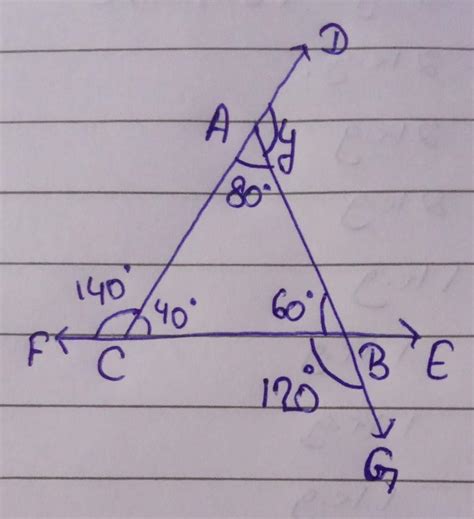 D
A
y
80°
140°
40°
60°
F
C
B
E
120°
G